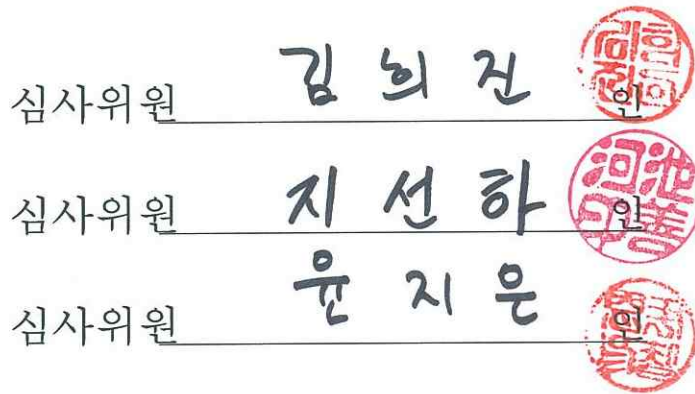 심사위원 김 희 진 인
심사위원 지 선 하 인
심사위원 윤 지 은 인